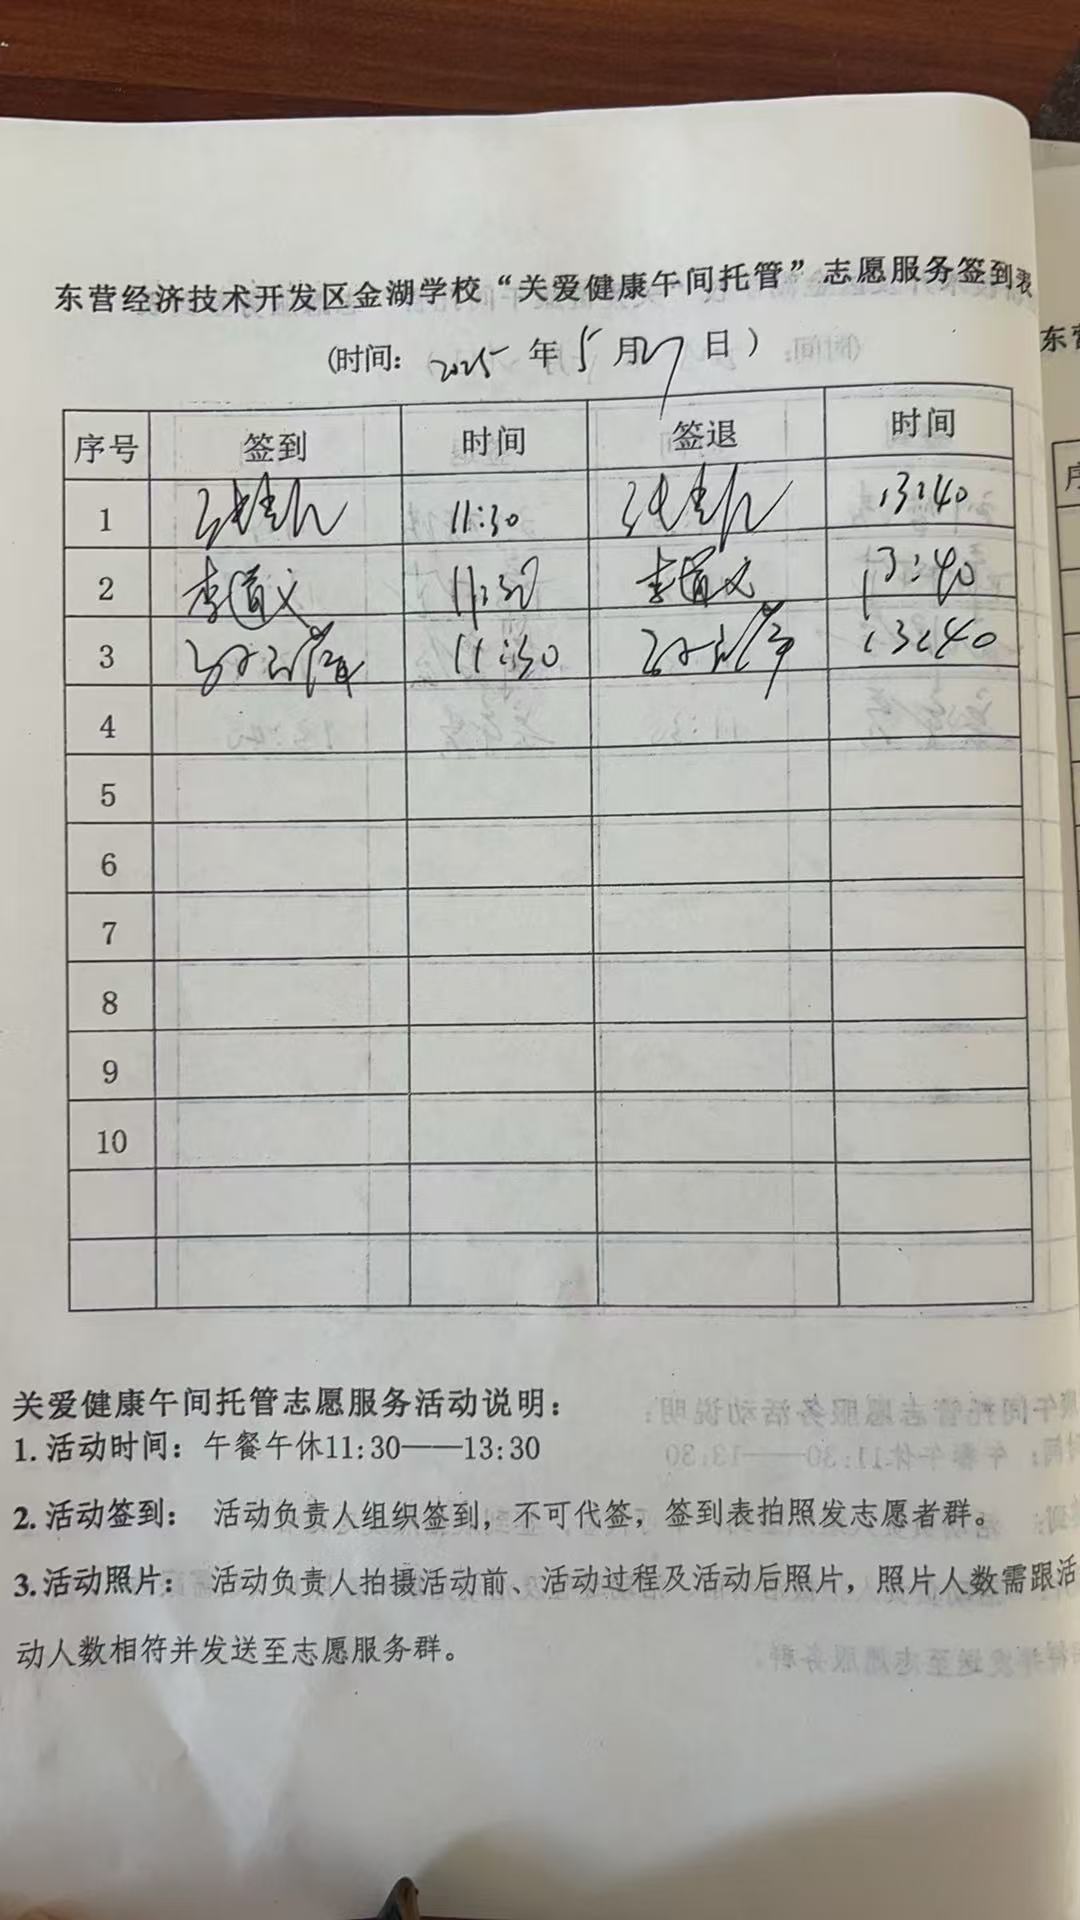 东营经济技术开发区金湖学校“关爱健康午间托管”志愿服务签到表
(时间: 2025 年 5 月 27 日 )
序号 签到 时间 签退 时间
1 11:30 13:40
2 李道义 11:30 李道义 13:40
3 11:30 13:40
4
5
6
7
8
9
10
关爱健康午间托管志愿服务活动说明:
1. 活动时间: 午餐午休11:30——13:30
2. 活动签到: 活动负责人组织签到, 不可代签, 签到表拍照发志愿者群。
3. 活动照片: 活动负责人拍摄活动前、活动过程及活动后照片, 照片人数需跟活
动人数相符并发送至志愿服务群。